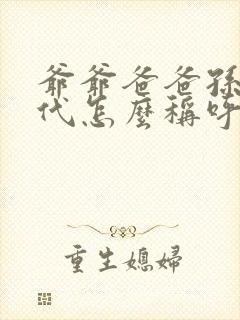 爺爺爸爸孫
代怎麼稱呼
重生媳婦